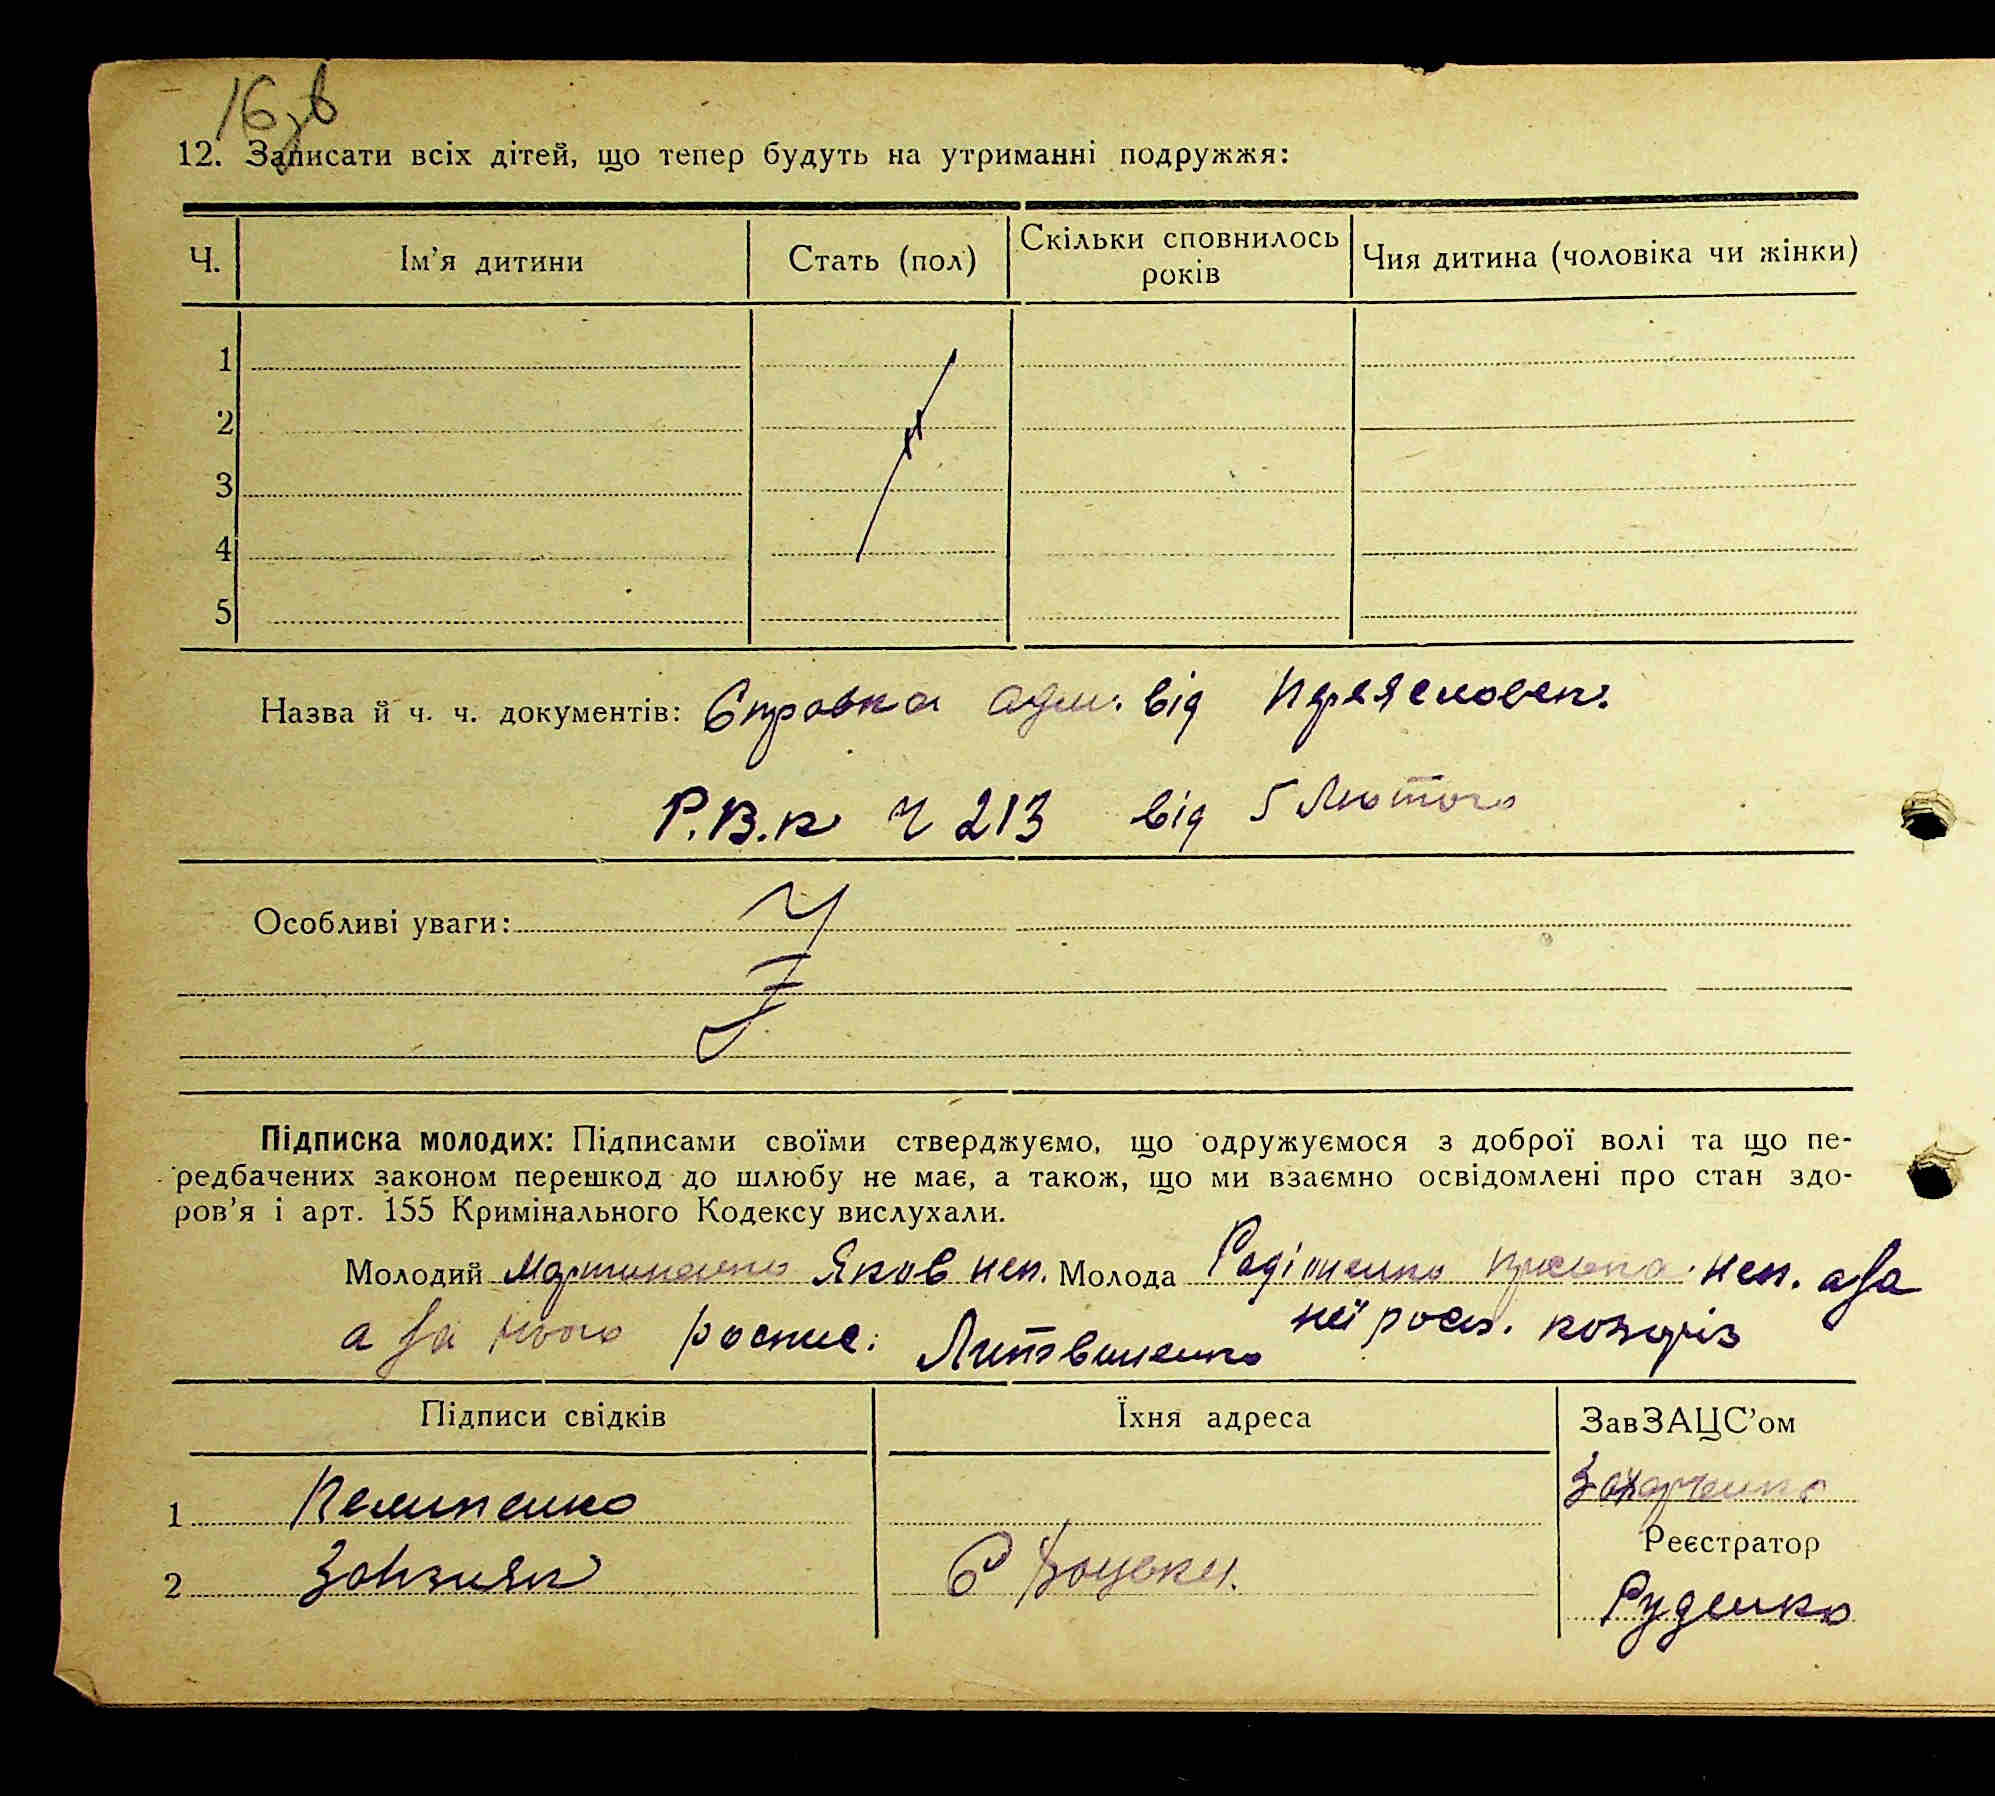 16зв
12. Записати всіх дітей, що тепер будуть на утриманні подружжя:
Ч. Ім'я дитини Стать (пол) Скільки сповнилось років Чия дитина (чоловіка чи жінки)
1
2
3
4
5
Назва й ч. ч. документів: Справка адм. від Переяславск.
Р.В.К Ч 213 від 5 Лютого
Особливі уваги:
Підписка молодих: Підписами своїми стверджуємо, що одружуємося з доброї волі та що пе-
редбачених законом перешкод до шлюбу не має, а також, що ми взаємно освідомлені про стан здо-
ров'я і арт. 155 Кримінального Кодексу вислухали.
Молодий Мартиненко Яков неп. Молода Радіоненко неп. а за
а за нього роспис. Литвиненко неї росп.
Підписи свідків Їхня адреса ЗавЗАЦС'ом
Захарченко
1 Пелипенко
Реєстратор
2 С
Руденко